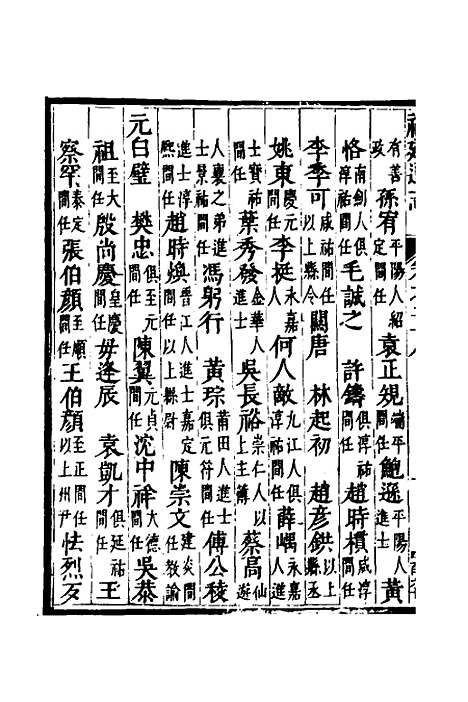 有善政孫宥平陽人紹定間任袁正規端平間任鮑遜平陽人進士黃
恪南劍人俱淳祐間任毛誠之 許鑄俱淳祐間任趙時橨咸淳間任
李季可咸祐間任以上縣令關唐 林起初 趙彥鉷以上縣丞
姚東慶元間任李挺永嘉人何人敵九江人俱淳祐間任薛嵎永嘉人進
士寶祐間任葉秀發金華人進士吳長裕崇仁人以上主簿蔡高仙遊
人襄之弟進士景祐間任馮躬行 黃琮莆田人進士俱元符間任傅公稜
進士淳熙間任趙時煥晉江人進士嘉定間任以上縣尉陳崇文建炎間任教諭
元白璧 樊忠俱至元間任陳翼元貞間任沈中祥大德間任吳恭
祖至大間任殷尚慶皇慶間任毋逢辰 袁凱才俱延祐間任王
察罕泰定間任張伯顏至順間任王伯顏至正間任以上州尹怯烈歹